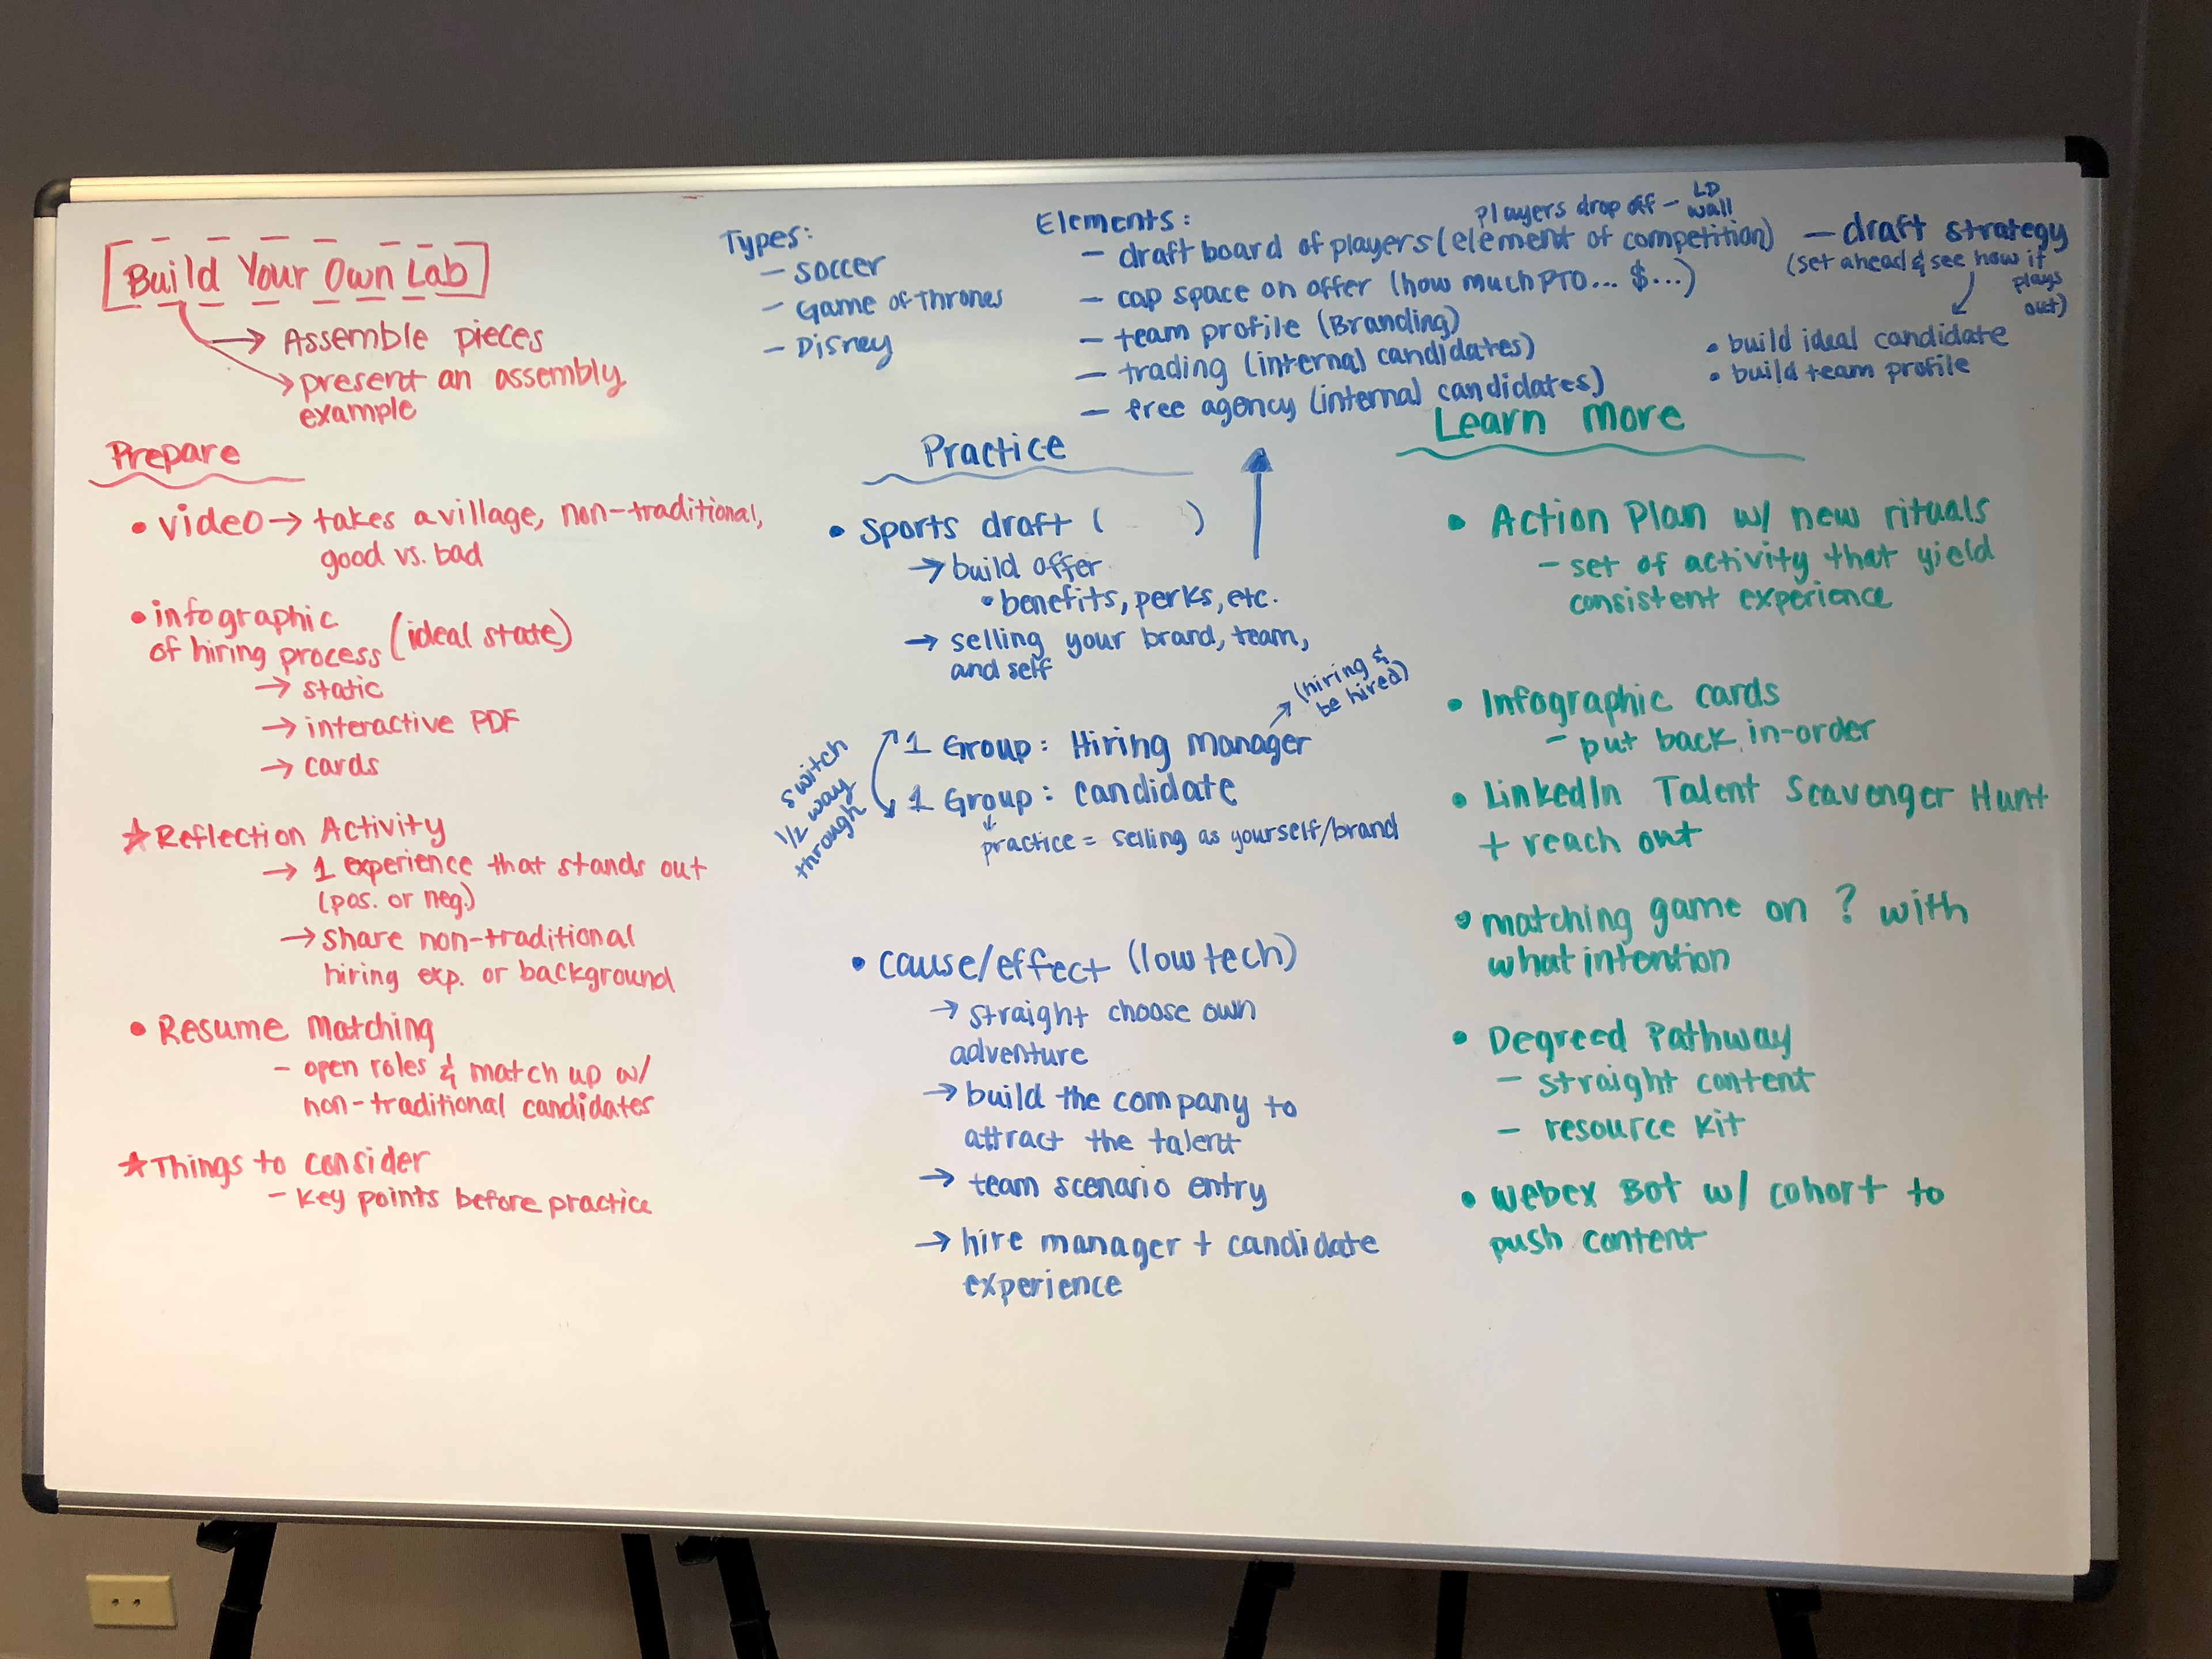 Build Your Own Lab
→ Assemble pieces
→ present an assembly
example
Types:
- soccer
- Game of Thrones
- Disney
Elements:
Players drop off - LD
wall
- draft board of players (element of competition)
- cap space on offer (how much PTO... $...)
- team profile (Branding)
- trading (internal candidates)
- free agency (internal candidates)
- draft strategy
(set ahead & see how it
plays
out)
• build ideal candidate
• build team profile
Prepare
• video → takes a village, non-traditional,
good vs. bad
• infographic
of hiring process (ideal state)
→ static
→ interactive PDF
→ cards
★ Reflection Activity
→ 1 experience that stands out
(pos. or neg.)
→ share non-traditional
hiring exp. or background
• Resume Matching
- open roles & match up w/
non-traditional candidates
★ Things to consider
- key points before practice
Practice
• Sports draft ( )
→ build offer
• benefits, perks, etc.
→ selling your brand, team,
and self
(hiring &
be hired)
1 Group: Hiring manager
1 Group: candidate
switch
1/2 way
through
practice = selling as yourself/brand
• cause/effect (low tech)
→ straight choose own
adventure
→ build the company to
attract the talent
→ team scenario entry
→ hire manager + candidate
experience
Learn More
• Action Plan w/ new rituals
- set of activity that yield
consistent experience
• Infographic cards
- put back in-order
• LinkedIn Talent Scavenger Hunt
+ reach out
• matching game on ? with
what intention
• Degreed Pathway
- straight content
- resource kit
• Webex Bot w/ cohort to
push content